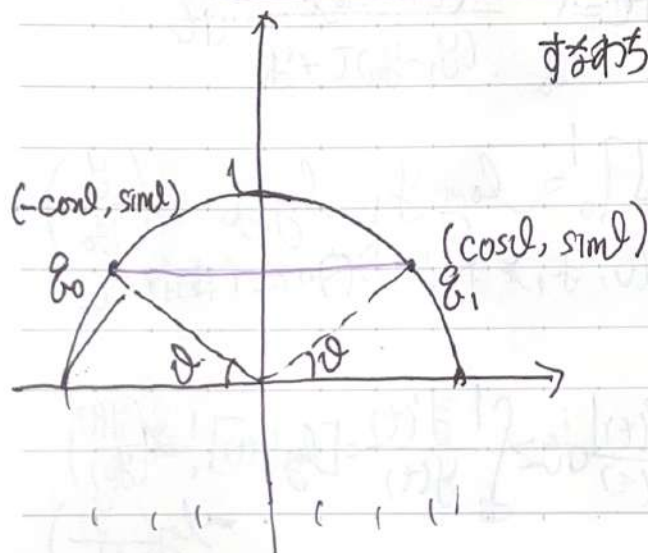 すなわち
1
(-cosθ, sinθ)
(cosθ, sinθ)
q₀
q₁
θ
θ